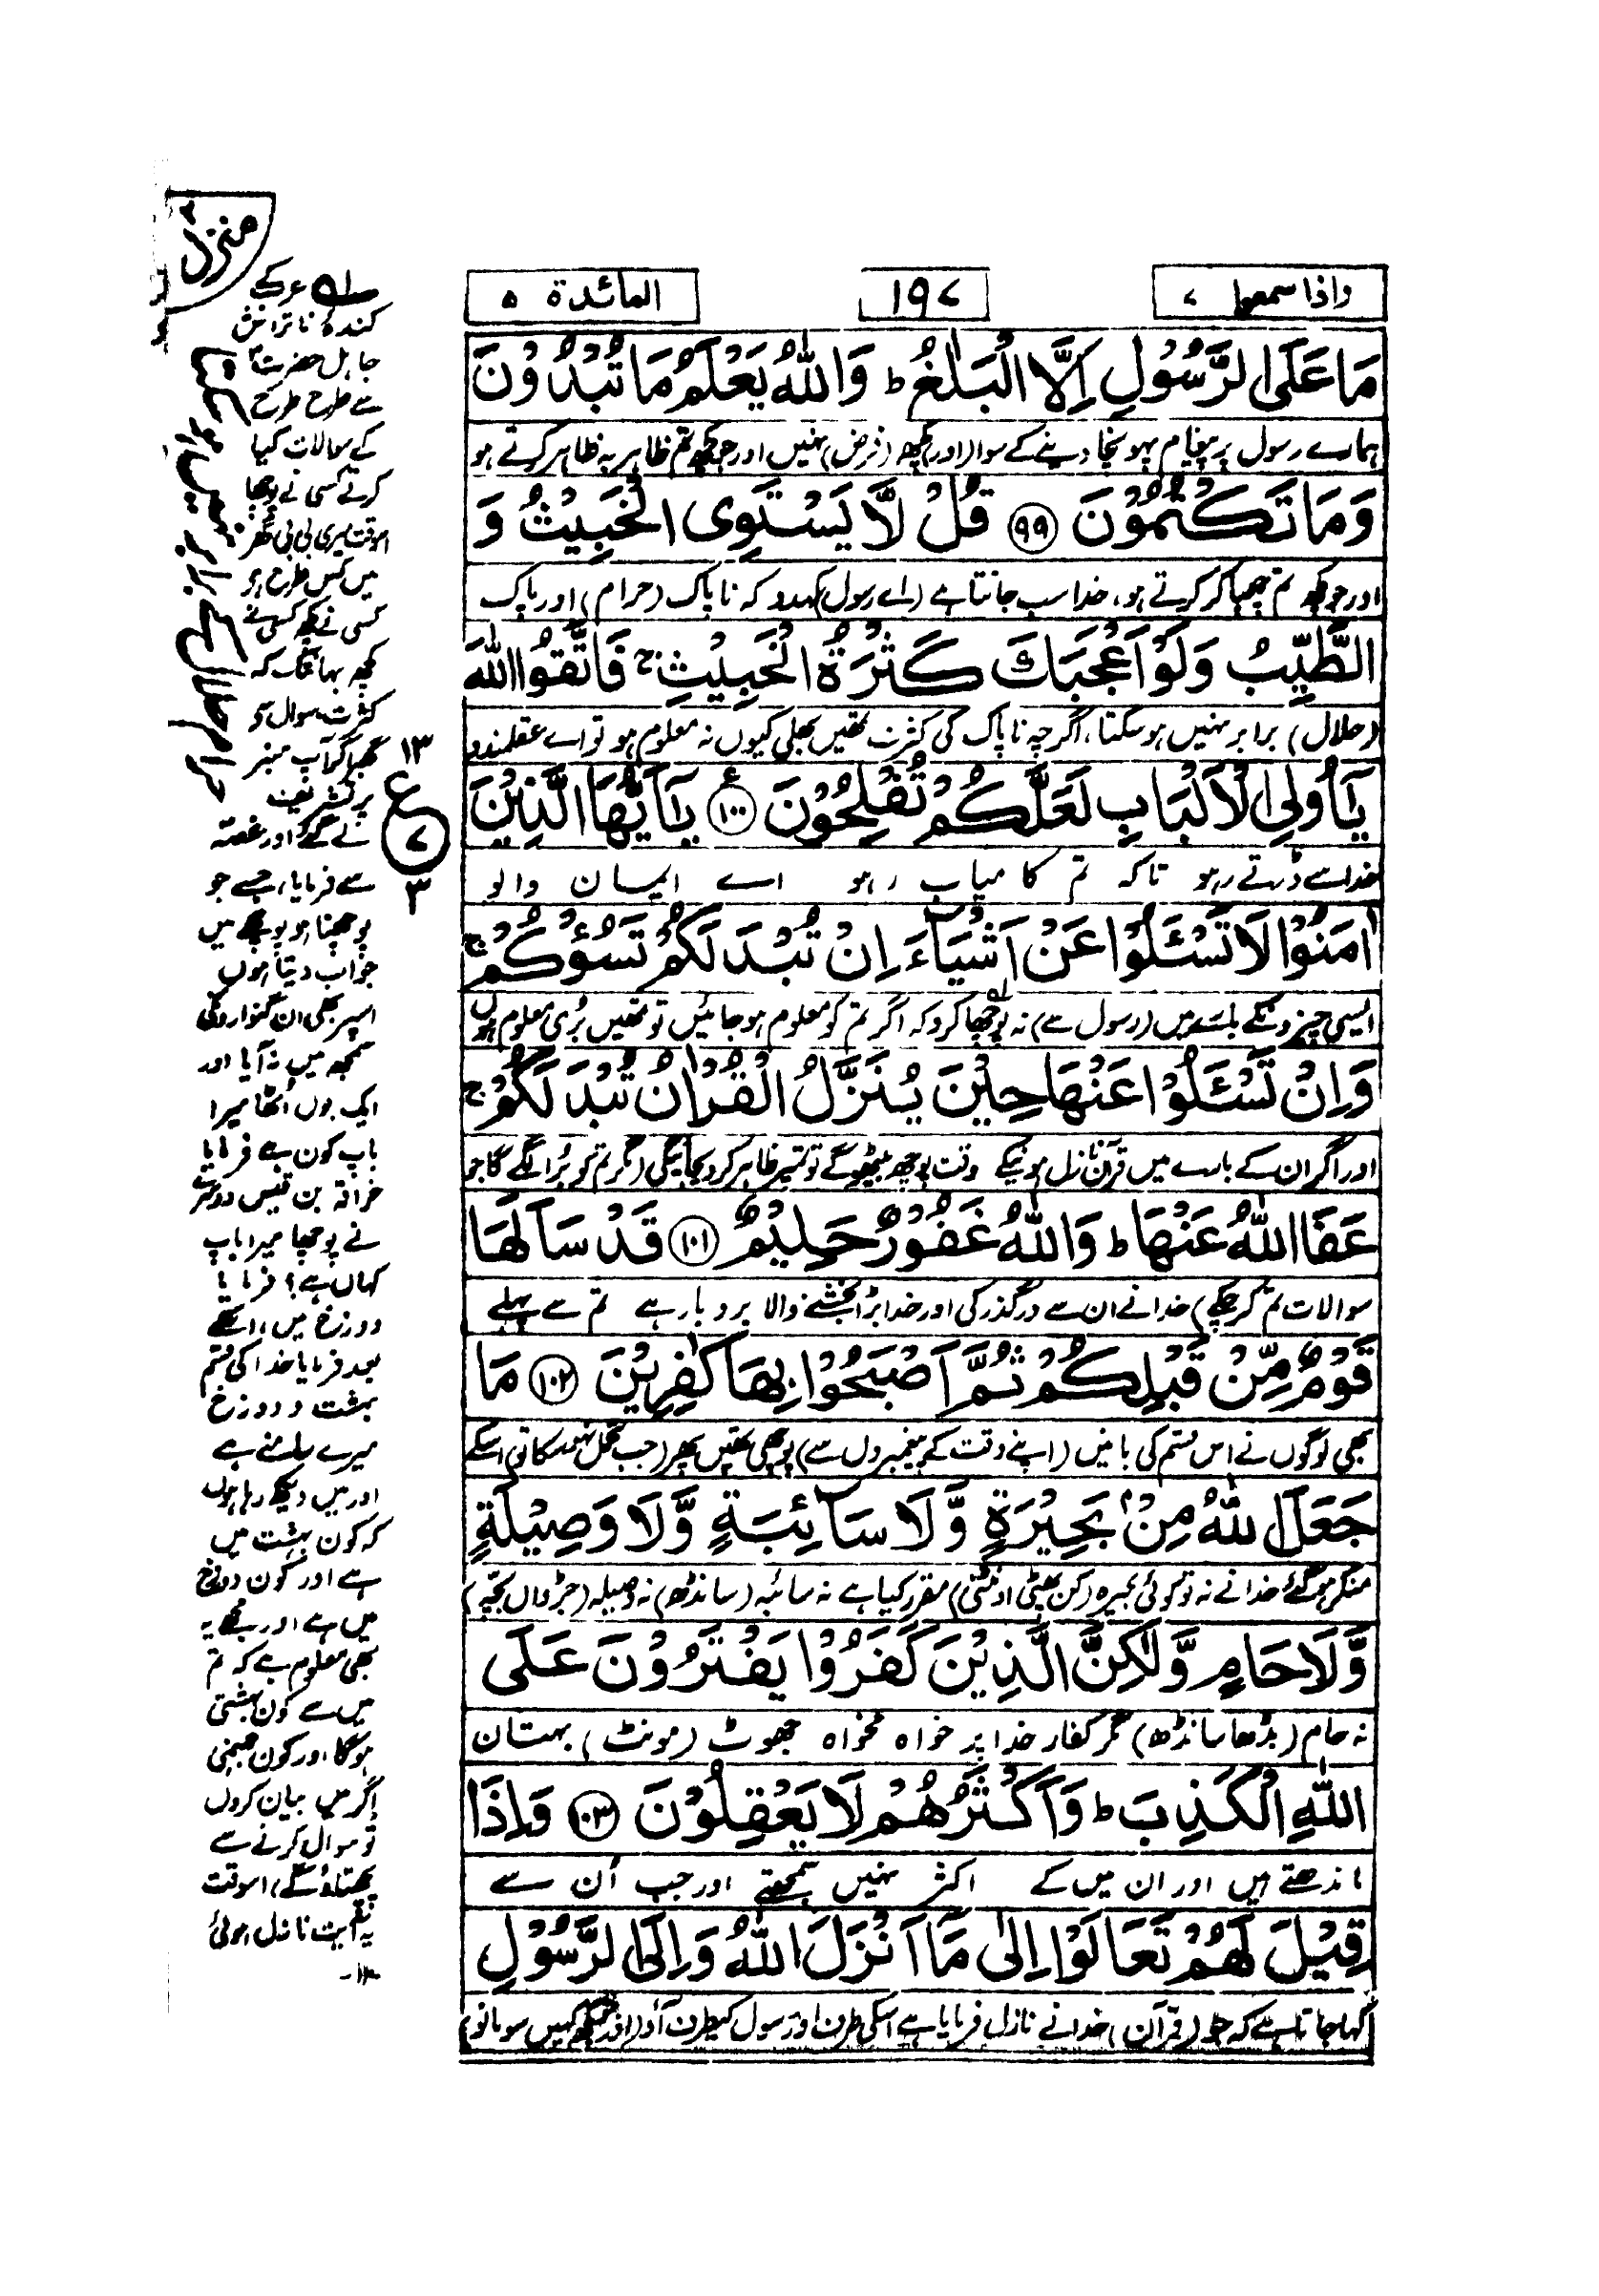 واذا سمعوا ۷
۱۹۷
المائدة ۵
مَا عَلَى الرَّسُوْلِ اِلَّا الْبَلٰغُ ؕ وَاللّٰهُ يَعْلَمُ مَا تُبْدُوْنَ
ہمارے رسول پر پیغام پہونچا دینے کے سوا اور کچھ (فرض) نہیں اور جو کچھ تم ظاہر بہ ظاہر کرتے ہو
وَمَا تَكْتُمُوْنَ ﴿۹۹﴾ قُلْ لَّا يَسْتَوِى الْخَبِيْثُ وَ
اور جو کچھ تم چھپا کر کرتے ہو، خدا سب جانتا ہے (اے رسول) کہدو کہ ناپاک (حرام) اور پاک
الطَّيِّبُ وَلَوْ اَعْجَبَكَ كَثْرَةُ الْخَبِيْثِ ۚ فَاتَّقُوا اللّٰهَ
(حلال) برابر نہیں ہو سکتا، اگرچہ ناپاک کی کثرت تمھیں بھلی کیوں نہ معلوم ہو تو اے عقلمندو
يٰۤاُولِى الْاَلْبَابِ لَعَلَّكُمْ تُفْلِحُوْنَ ﴿۱۰۰﴾ ع يٰۤاَيُّهَا الَّذِيْنَ
خدا سے ڈرتے رہو تاکہ تم کامیاب رہو اے ایمان والو
اٰمَنُوْا لَا تَسْئَلُوْا عَنْ اَشْيَآءَ اِنْ تُبْدَ لَكُمْ تَسُؤْكُمْ ۚ
ایسی چیزونکے بارے میں (رسول سے) نہ پوچھا کرو کہ اگر تم کو معلوم ہو جائیں تو تمھیں بُری معلوم ہوں
وَاِنْ تَسْئَلُوْا عَنْهَا حِيْنَ يُنَزَّلُ الْقُرْاٰنُ تُبْدَ لَكُمْ ۚ
اور اگر ان کے بارے میں قرآن نازل ہونیکے وقت پوچھ بیٹھو گے تو تمپر ظاہر کر دیجائیگی (مگر تم کو بُرا لگے گا جو
عَفَا اللّٰهُ عَنْهَا ؕ وَاللّٰهُ غَفُوْرٌ حَلِيْمٌ ﴿۱۰۱﴾ قَدْ سَاَلَهَا
سوالات تم کر چکے) خدا نے ان سے درگذر کی اور خدا بڑا بخشنے والا بردبار ہے تم سے پہلے
قَوْمٌ مِّنْ قَبْلِكُمْ ثُمَّ اَصْبَحُوْا بِهَا كٰفِرِيْنَ ﴿۱۰۲﴾ مَا
بھی لوگوں نے اس قسم کی باتیں (اپنے وقت کے پیغمبروں سے) پوچھی تھیں پھر (جب
جَعَلَ اللّٰهُ مِنْۢ بَحِيْرَةٍ وَّلَا سَآئِبَةٍ وَّلَا وَصِيْلَةٍ
منکر ہو گئے خدا نے نہ تو کوئی بحیرہ (کن پھٹی اونٹنی) مقرر کیا ہے نہ سائبہ (سانڈھ) نہ وصیلہ (جڑواں بچے)
وَّلَا حَامٍ وَّلٰكِنَّ الَّذِيْنَ كَفَرُوْا يَفْتَرُوْنَ عَلَى
نہ حام (بڈھا سانڈھ) مگر کفار خدا پر خواہ مخواہ جھوٹ (موٹ) بہتان
اللّٰهِ الْكَذِبَ ؕ وَاَكْثَرُهُمْ لَا يَعْقِلُوْنَ ﴿۱۰۳﴾ وَاِذَا
باندھتے ہیں اور ان میں کے اکثر نہیں سمجھتے اور جب اُن سے
قِيْلَ لَهُمْ تَعَالَوْا اِلٰى مَاۤ اَنْزَلَ اللّٰهُ وَاِلَى الرَّسُوْلِ
کہا جاتا ہے کہ جو (قرآن) خدا نے نازل فرمایا ہے اسکی طرف اور رسول کیطرف آؤ (اور جو کچھ کہیں سو مانو)
منزل ۲
۱۳
ع
۷
۳
لے عرب کے
کندہ ناتراش
جاہل حضرت
سے طرح طرح
کے سوالات کیا
کرتے کسی نے پوچھا
اسوقت میری بی بی گھر
میں کس طرح ہے
کسی نے کچھ کسی نے
کچھ یہانتک کہ
کثرت سوال سے
گھبرا کر آپ منبر
پر تشریف
لے گئے اور غصہ
سے فرمایا، جسے جو
پوچھنا ہو پوچھے میں
جواب دیتا ہوں
اسپر بھی ان گنواروں کی
سمجھ میں نہ آیا اور
ایک بول اُٹھا میرا
باپ کون ہے فرمایا
بن قیس دوسرے
نے پوچھا میرا باپ
کہاں ہے؟ فرمایا
دوزخ میں، اسکے
بعد فرمایا خدا کی قسم
بہشت و دوزخ
میرے سامنے ہے
اور میں دیکھ رہا ہوں
کہ کون بہشت میں
ہے اور کون دوزخ
میں ہے اور مجھے یہ
بھی معلوم ہے کہ تم
میں سے کون بہشتی
ہوگا اور کون جہنمی
اگر میں بیان کروں
تو سوال کرنے سے
پچھتاؤ گے، اسوقت
یہ آیت نازل ہوئی
-۱۲-